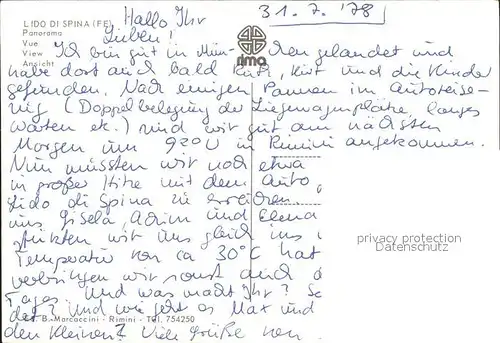 LIDO DI SPINA (FE)
Panorama
Vue
View
Ansicht
31.7.'78
Hallo Ihr
Lieben!
rima
Ich bin gut in Mün- chen gelandet und
habe dort auch bald Ruti, Kurt und die Kinder
gefunden. Nach einigen Pannen im Autoreise-
zug (Doppelbelegung der Liegewagenplätze, langes
Warten etc.) sind wir gut am nächsten
Morgen um 9.20 U in Rimini angekommen.
Nun mussten wir noch etwa
in großer Hitze mit dem Auto,
Lido di Spina zu erreichen.
uns Gisela, und Elena
wir uns gleich ins
Temperatur von ca 30°C hat
verbringen wir sonst auch d
Tages Und was macht Ihr? Se
det? Und wie geht es Max und
den Kleinen? Viele Grüße von
B. Marcaccini - Rimini - Tel. 754250
privacy protection
Datenschutz